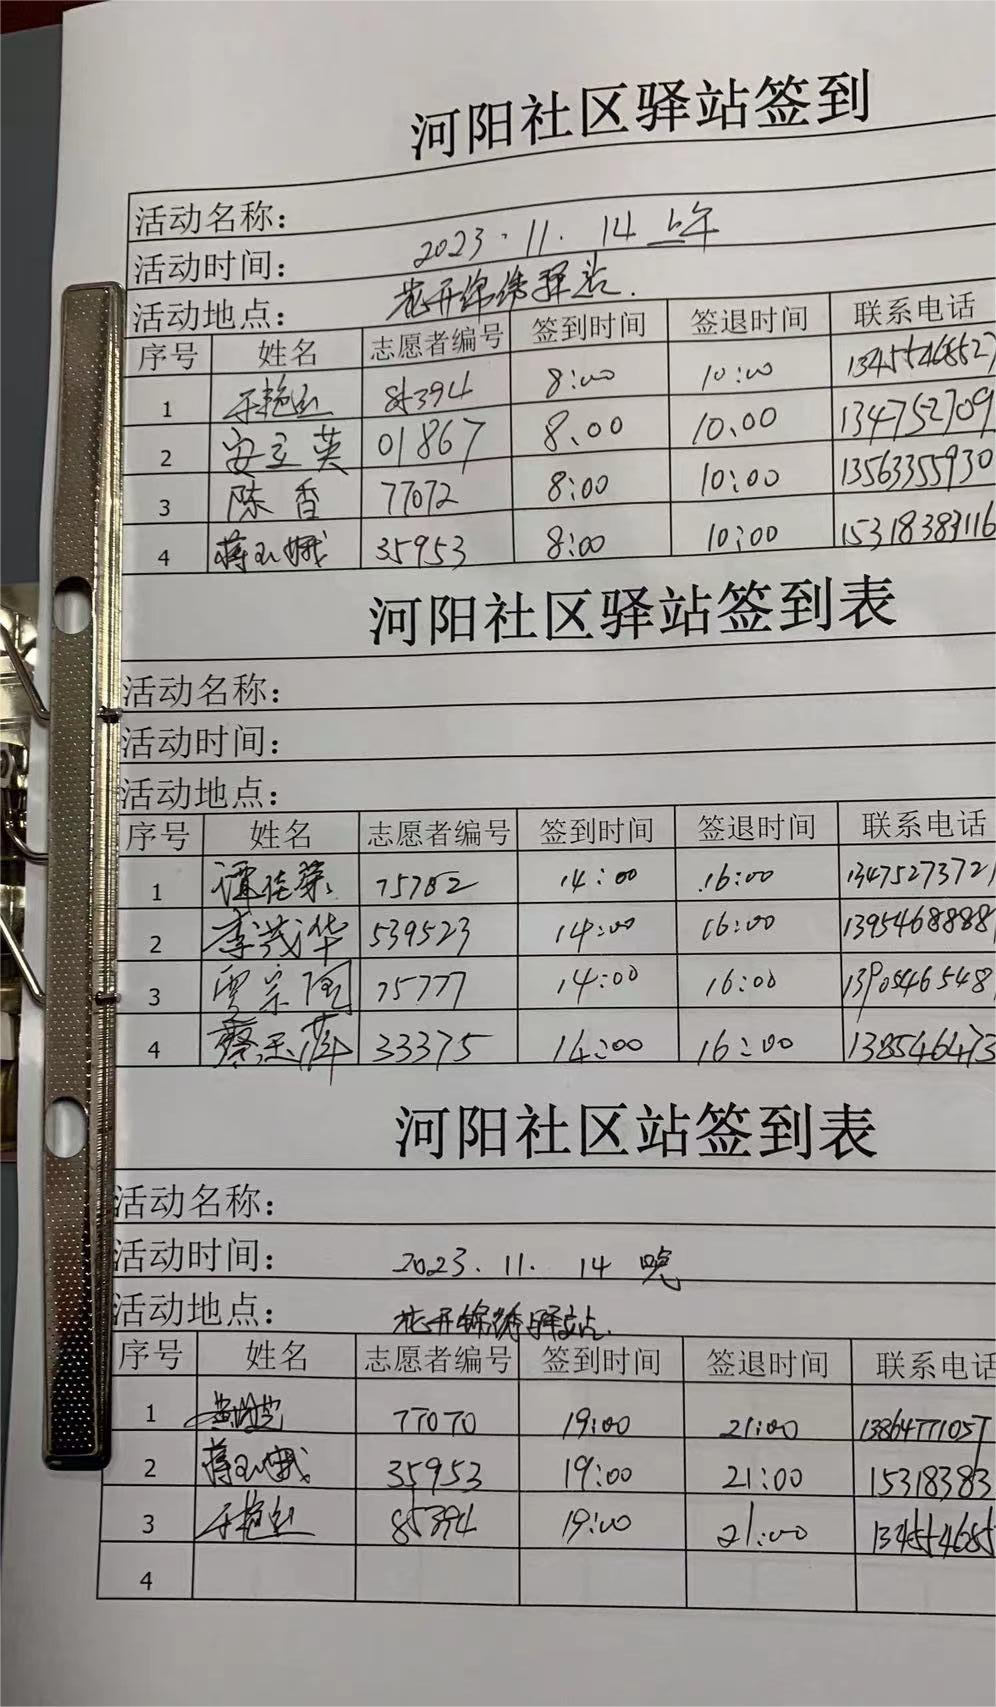 河阳社区驿站签到
活动名称：
活动时间： 2023.11.14 上午
活动地点： 花开锦绣驿站.
序号 姓名 志愿者编号 签到时间 签退时间 联系电话
1 于艳丛 85394 8:00 10:00 13455468527
2 安立英 01867 8:00 10:00 134752709
3 陈香 77072 8:00 10:00 13563355930
4 蒋玉娥 35953 8:00 10:00 15318383116
河阳社区驿站签到表
活动名称：
活动时间：
活动地点：
序号 姓名 志愿者编号 签到时间 签退时间 联系电话
1 谭佳荣 75782 14:00 16:00 1347527372
2 李茂华 539523 14:00 16:00 1395468888
3 贾宗国 75777 14:00 16:00 1390546548
4 蔡玉萍 33375 14:00 16:00 138546473
河阳社区站签到表
活动名称：
活动时间： 2023.11.14 晚
活动地点： 花开锦绣驿站.
序号 姓名 志愿者编号 签到时间 签退时间 联系电话
1 77070 19:00 21:00 13864771057
2 蒋玉娥 35953 19:00 21:00 15318383
3 于艳丛 85394 19:00 21:00 134554685
4